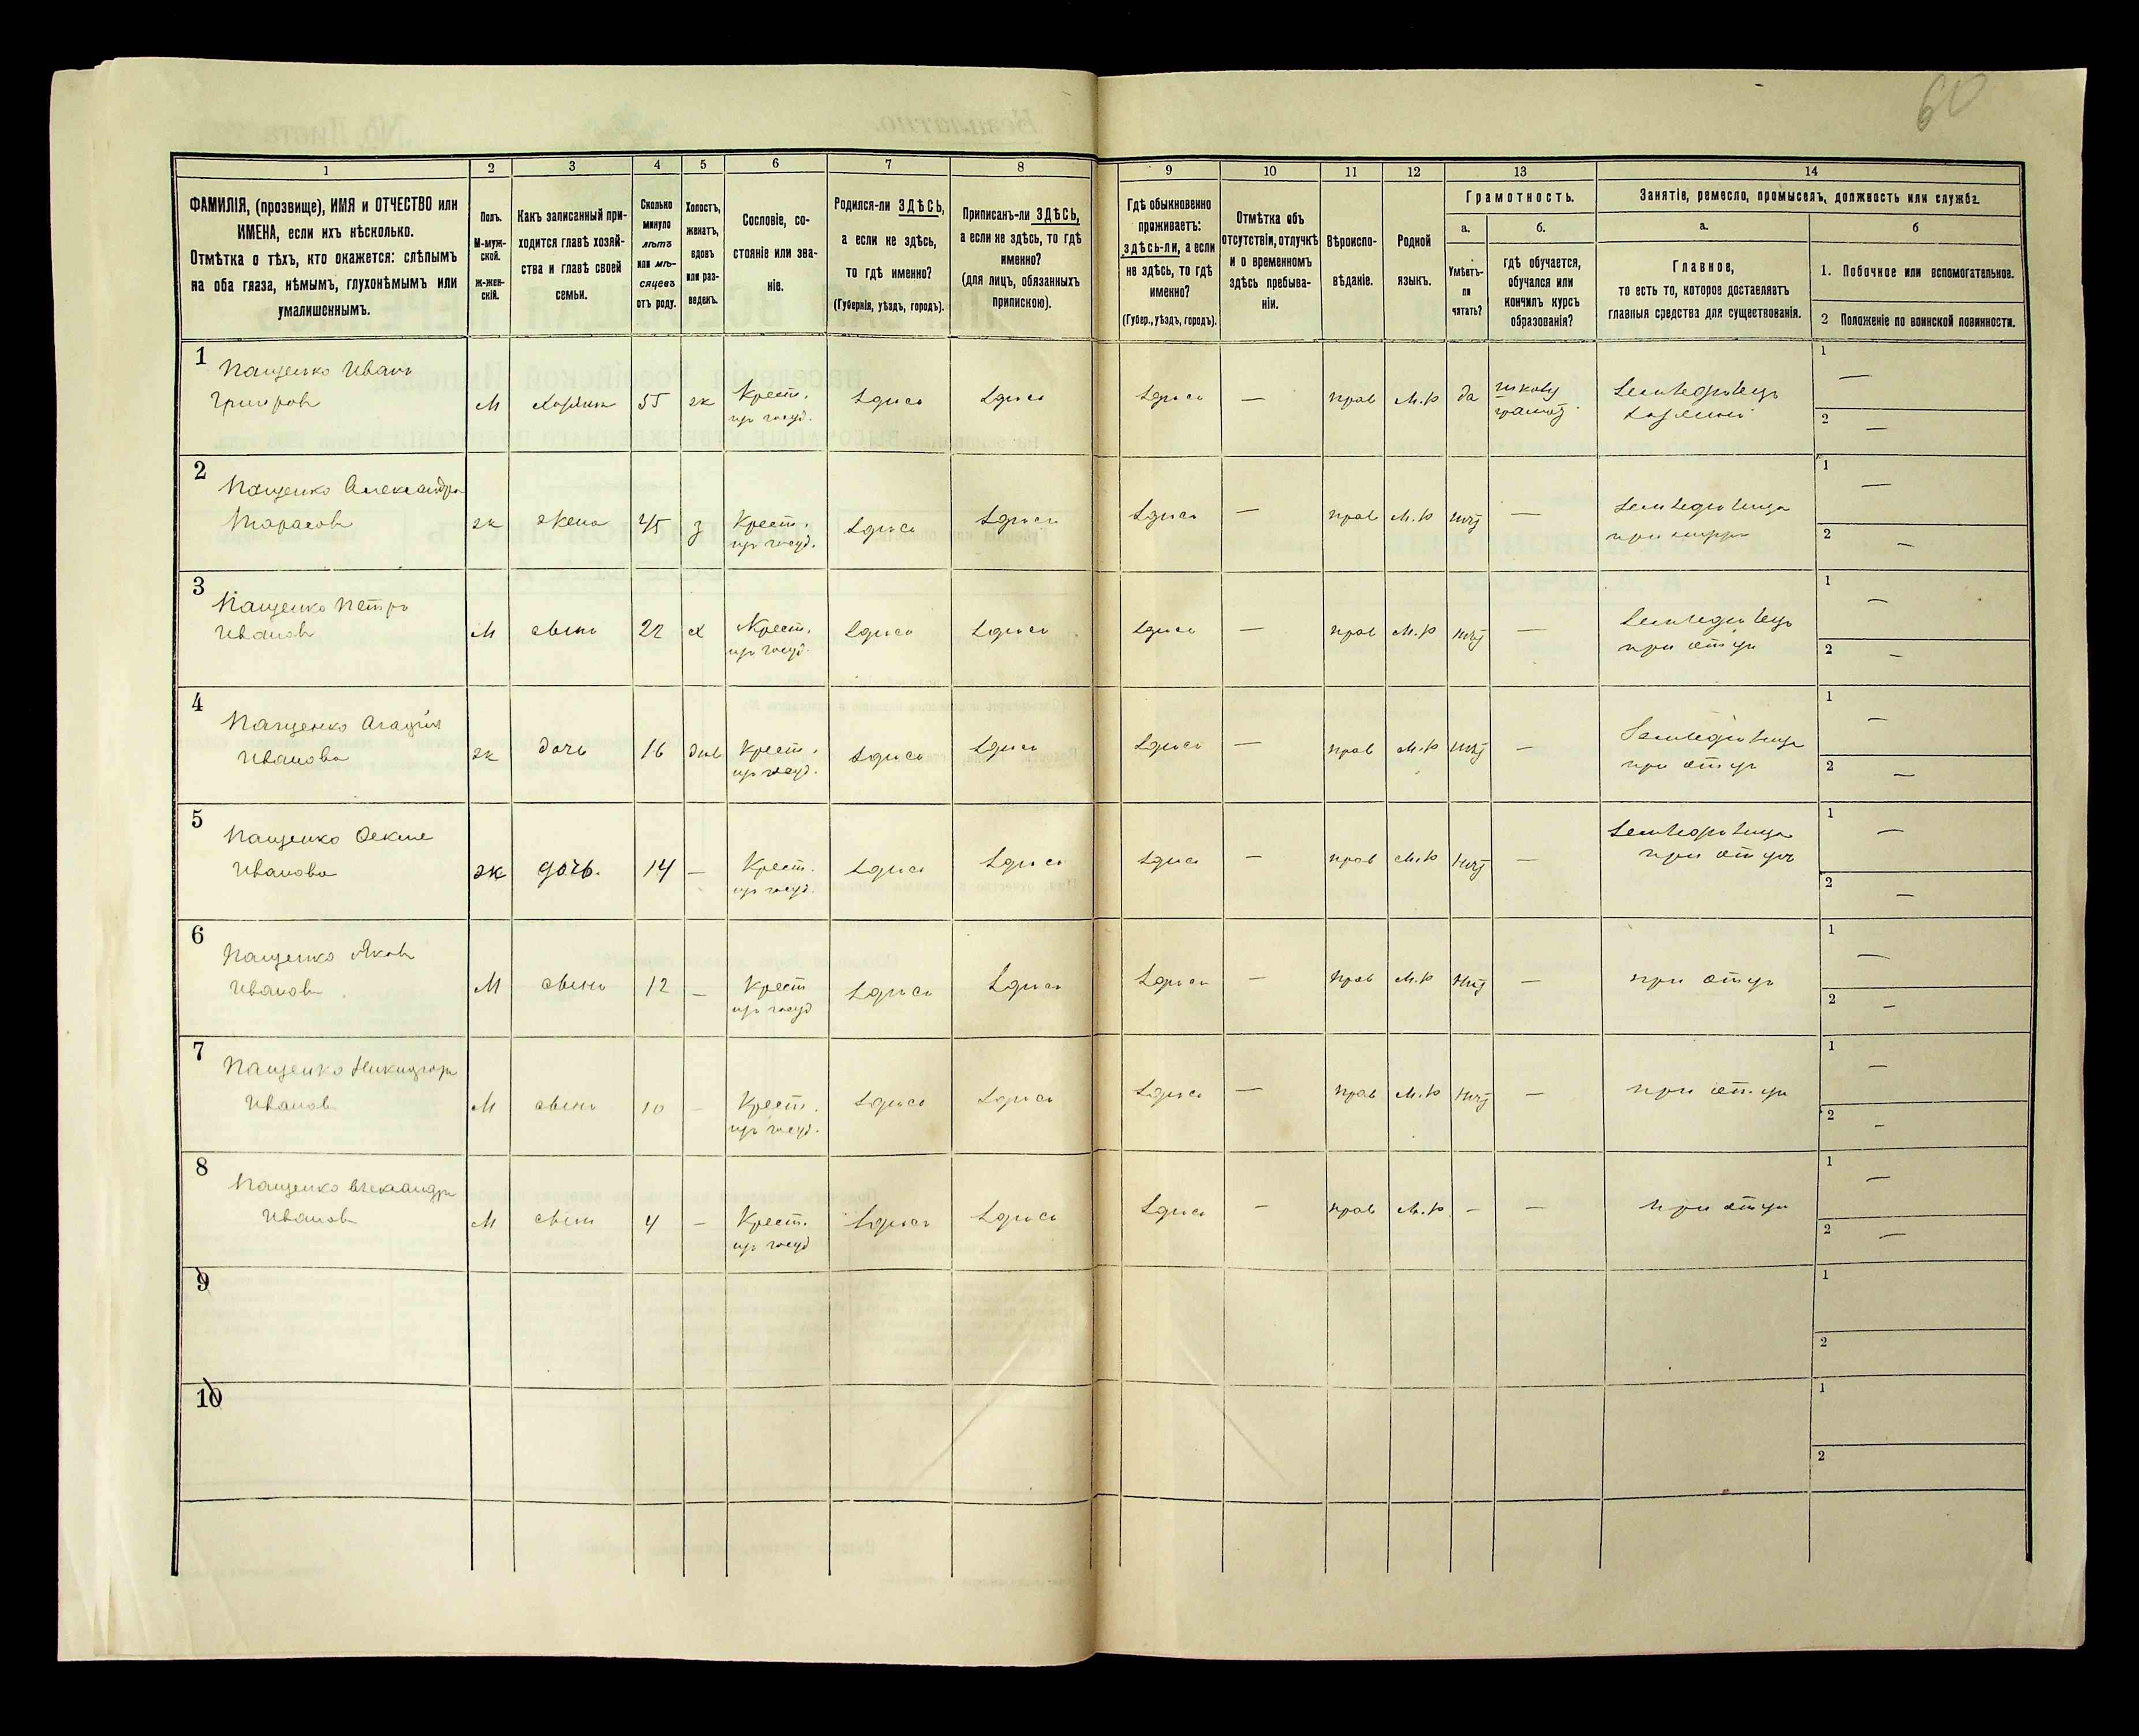 60
1 2 3 4 5 6 7 8 9 10 11 12 13 14
ФАМИЛІЯ, (прозвище), ИМЯ и ОТЧЕСТВО или
ИМЕНА, если ихъ нѣсколько.
Отмѣтка о тѣхъ, кто окажется: слѣпымъ
на оба глаза, нѣмымъ, глухонѣмымъ или
умалишеннымъ.
Полъ.
М-муж-
ской.
ж-жен-
скій.
Какъ записанный при-
ходится главѣ хозяй-
ства и главѣ своей
семьи.
Сколько
минуло
лѣтъ
или мѣ-
сяцевъ
отъ роду.
Холостъ,
женатъ,
вдовъ
или раз-
веденъ.
Сословіе, со-
стояніе или зва-
ніе.
Родился-ли ЗДѢСЬ,
а если не здѣсь,
то гдѣ именно?
(Губернія, уѣздъ, городъ).
Приписанъ-ли ЗДѢСЬ,
а если не здѣсь, то гдѣ
именно?
(для лицъ, обязанныхъ
припискою).
Гдѣ обыкновенно
проживаетъ:
здѣсь-ли, а если
не здѣсь, то гдѣ
именно?
(Губер., уѣздъ, городъ).
Отмѣтка объ
отсутствіи, отлучкѣ
и о временномъ
здѣсь пребыва-
ніи.
Вѣроиспо-
вѣданіе.
Родной
языкъ.
Грамотность.
а.
Умѣетъ-
ли
читать?
б.
гдѣ обучается,
обучался или
кончилъ курсъ
образованія?
Занятіе, ремесло, промыселъ, должность или служба.
а.
Главное,
то есть то, которое доставляетъ
главныя средства для существованія.
б
1. Побочное или вспомогательное.
2 Положеніе по воинской повинности.
1 Пащенко Иванъ
Григоров М Хозяин 55 ж Крест. Здѣсь Здѣсь Здѣсь — прав М.р да 1 —
из госуд. Земледѣлецъ 2 —
хозяинъ
2 Пащенко Александра
Тарасов ж жена 45 з Крест. Здѣсь Здѣсь Здѣсь — прав М.р нѣт — Земледѣлица 1 —
из госуд. при 2 —
3 Пащенко Петръ
Иванов М сынъ 22 х Крест. Здѣсь Здѣсь Здѣсь — прав М.р нѣт — Земледѣлецъ 1 —
из госуд. при отцѣ 2 —
4 Пащенко Агафія
Иванова ж дочь 16 дѣв Крест. Здѣсь Здѣсь Здѣсь — прав М.р нѣт — Земледѣлица 1 —
из госуд. при отцѣ 2 —
5 Пащенко
Иванова ж дочь. 14 — Крест. Здѣсь Здѣсь Здѣсь — прав М.р нѣт — Земледѣлица 1 —
из госуд. при отцѣ 2 —
6 Пащенко Яков
Иванов М сынъ 12 — Крест Здѣсь Здѣсь Здѣсь — прав М.р нѣт — при отцѣ 1 —
из госуд 2 —
7 Пащенко Никифоръ
Иванов М сынъ 10 — Крест. Здѣсь Здѣсь Здѣсь — прав М.р нѣт — при отцѣ 1 —
из госуд. 2 —
8 Пащенко Александръ
Иванов М сынъ 4 — Крест. Здѣсь Здѣсь Здѣсь — прав М.р — — при отцѣ 1 —
из госуд 2 —
9 1
2
10 1
2